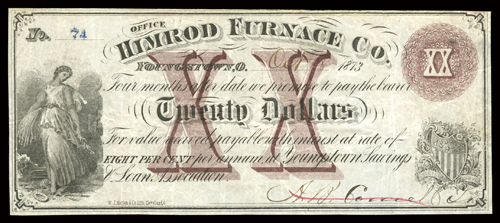 No. 74
OFFICE
HIMROD FURNACE CO.
YOUNGSTOWN, O. Oct 1873
Four months after date we promise to pay the bearer
Twenty Dollars
XX
XX
For value received payable with interest at rate of
EIGHT PER CENT per annum at Youngstown Savings
& Loan Association.